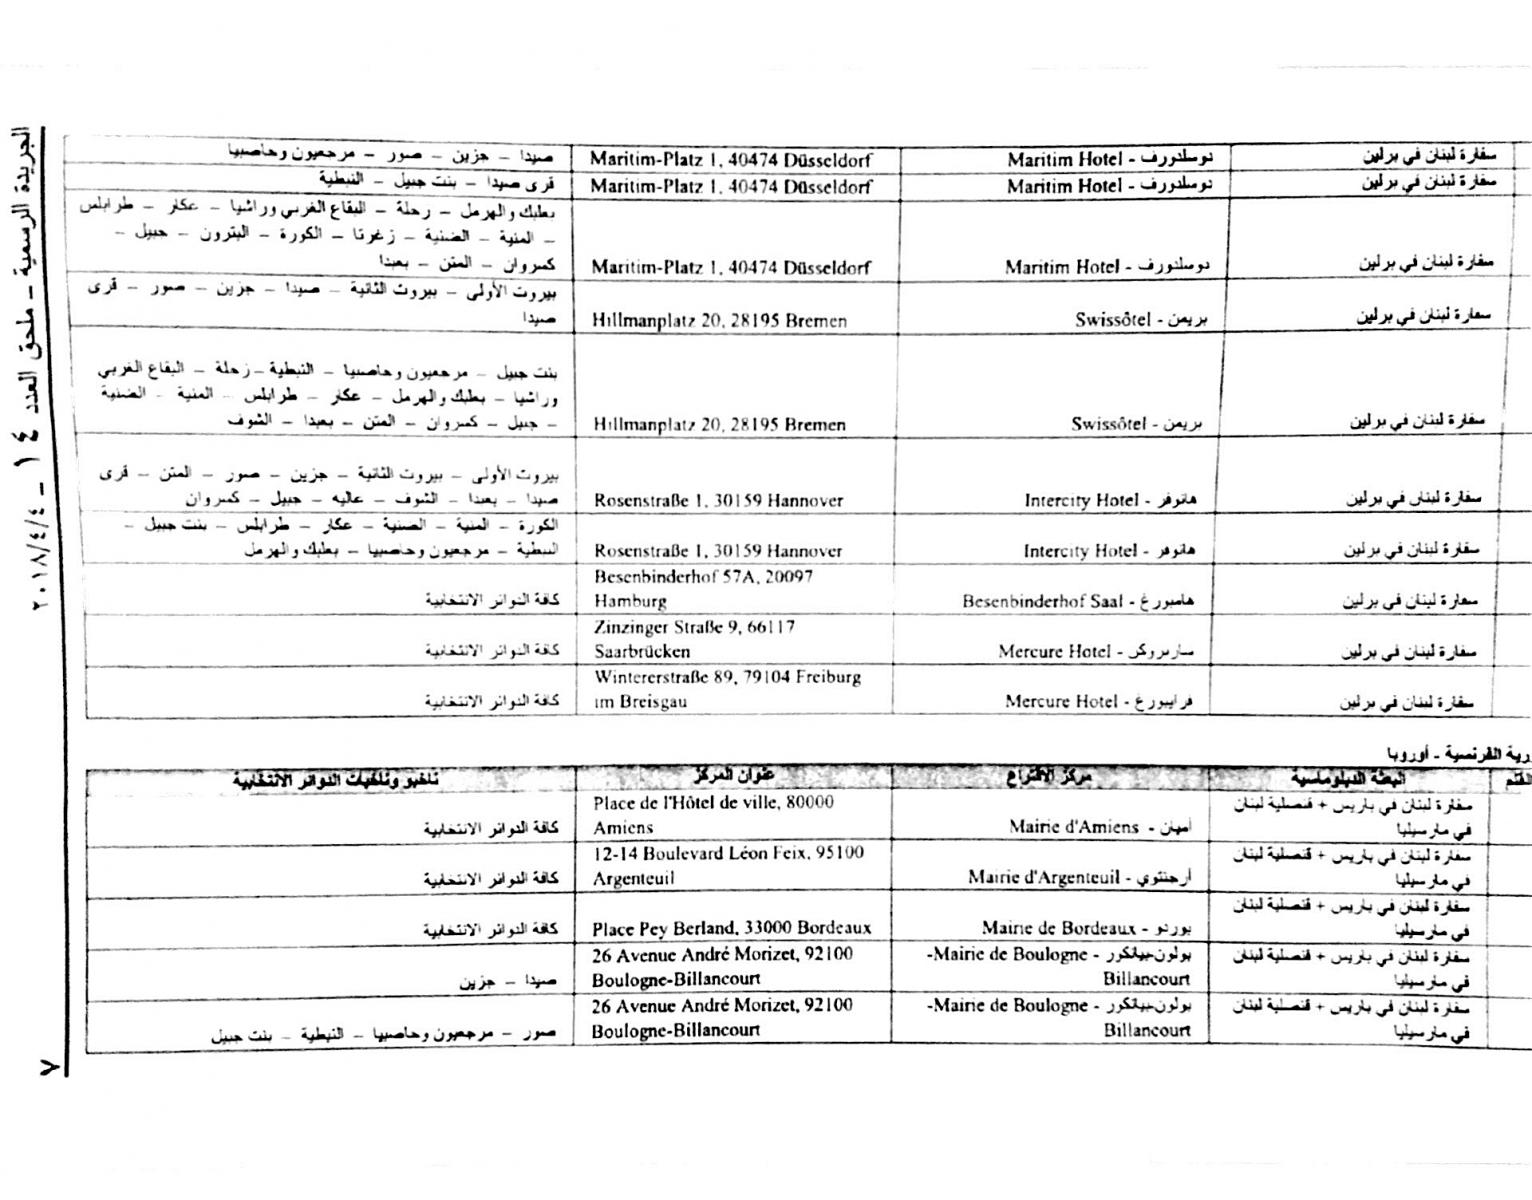 الجريدة الرسمية – ملحق العدد ١٤ – ٢٠١٨/٤/٤
٧
سفارة لبنان في برلين
دوسلدورف - Maritim Hotel
Maritim-Platz 1, 40474 Düsseldorf
صيدا – جزين – صور – مرجعيون وحاصبيا
سفارة لبنان في برلين
دوسلدورف - Maritim Hotel
Maritim-Platz 1, 40474 Düsseldorf
قرى صيدا – بنت جبيل – النبطية
سفارة لبنان في برلين
دوسلدورف - Maritim Hotel
Maritim-Platz 1, 40474 Düsseldorf
بعلبك والهرمل – زحلة – البقاع الغربي وراشيا – عكار – طرابلس
– المنية – الضنية – زغرتا – الكورة – البترون – جبيل –
كسروان – المتن – بعبدا
سفارة لبنان في برلين
بريمن - Swissôtel
Hillmanplatz 20, 28195 Bremen
بيروت الأولى – بيروت الثانية – صيدا – جزين – صور – قرى
صيدا
سفارة لبنان في برلين
بريمن - Swissôtel
Hillmanplatz 20, 28195 Bremen
بنت جبيل – مرجعيون وحاصبيا – النبطية – زحلة – البقاع الغربي
وراشيا – بعلبك والهرمل – عكار – طرابلس – المنية – الضنية
– جبيل – كسروان – المتن – بعبدا – الشوف
سفارة لبنان في برلين
هانوفر - Intercity Hotel
Rosenstraße 1, 30159 Hannover
بيروت الأولى – بيروت الثانية – جزين – صور – المتن – قرى
صيدا – بعبدا – الشوف – عاليه – جبيل – كسروان
سفارة لبنان في برلين
هانوفر - Intercity Hotel
Rosenstraße 1, 30159 Hannover
الكورة – المنية – الضنية – عكار – طرابلس – بنت جبيل –
النبطية – مرجعيون وحاصبيا – بعلبك والهرمل
سفارة لبنان في برلين
هامبورغ - Besenbinderhof Saal
Besenbinderhof 57A, 20097
Hamburg
كافة الدوائر الانتخابية
سفارة لبنان في برلين
ساربروكن - Mercure Hotel
Zinzinger Straße 9, 66117
Saarbrücken
كافة الدوائر الانتخابية
سفارة لبنان في برلين
فرايبورغ - Mercure Hotel
Wintererstraße 89, 79104 Freiburg
im Breisgau
كافة الدوائر الانتخابية
رية الفرنسية - أوروبا
القلم
البعثة الدبلوماسية
مركز الاقتراع
عنوان المركز
ناخبو وناخبات الدوائر الانتخابية
سفارة لبنان في باريس + قنصلية لبنان
في مارسيليا
أميان - Mairie d'Amiens
Place de l'Hôtel de ville, 80000
Amiens
كافة الدوائر الانتخابية
سفارة لبنان في باريس + قنصلية لبنان
في مارسيليا
أرجنتوي - Mairie d'Argenteuil
12-14 Boulevard Léon Feix, 95100
Argenteuil
كافة الدوائر الانتخابية
سفارة لبنان في باريس + قنصلية لبنان
في مارسيليا
بوردو - Mairie de Bordeaux
Place Pey Berland, 33000 Bordeaux
كافة الدوائر الانتخابية
سفارة لبنان في باريس + قنصلية لبنان
في مارسيليا
بولون-بيانكور - Mairie de Boulogne-
Billancourt
26 Avenue André Morizet, 92100
Boulogne-Billancourt
صيدا – جزين
سفارة لبنان في باريس + قنصلية لبنان
في مارسيليا
بولون-بيانكور - Mairie de Boulogne-
Billancourt
26 Avenue André Morizet, 92100
Boulogne-Billancourt
صور – مرجعيون وحاصبيا – النبطية – بنت جبيل